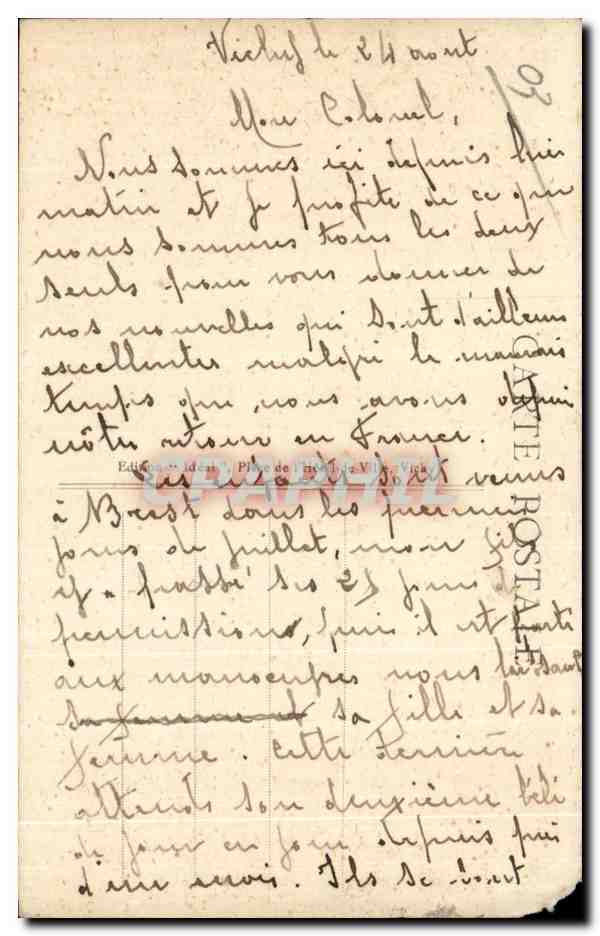 Vichy le 24 aout
03
Mon Colonel,
Nous sommes ici depuis hier
matin et je profite de ce que
nous sommes tous les deux
seuls pour vous donner de
nos nouvelles qui sont d'ailleurs
excellentes malgré le mauvais
temps que nous avons depuis
nôtre retour en France.
Edition "Idéal", Place de l'Hôtel de Ville, Vichy
CPAPHIL
CARTE POSTALE
Les enfants sont venus
à Brest dans les premiers
jours de juillet, mon fils
y a passé ses 25 jours de
permission, puis il est parti
aux manoeuvres nous laissant
sa femme et sa fille et sa
femme. Cette dernière
attends son deuxième bébé
de jour en jour depuis près
d'un mois. Ils se sont